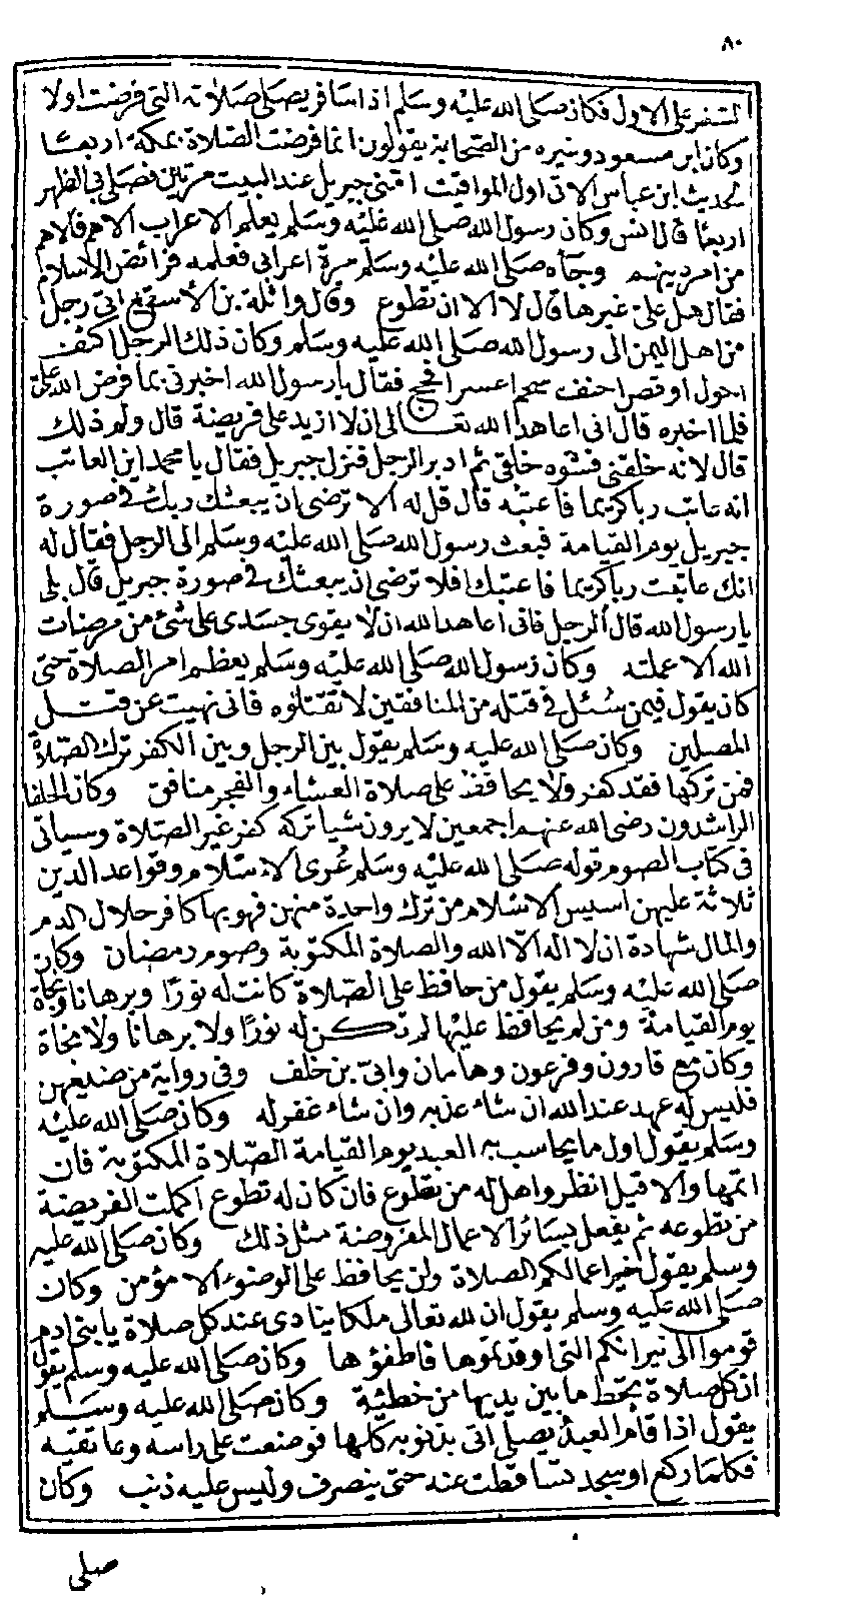 ٨٠
السفر على الاول فكان صلى الله عليه وسلم اذا سافر يصلى صلاته التى فرضت اولا
وكان ابن مسعود وغيره من الصحابة يقولون انما فرضت الصلاة بمكة اربعا
لحديث ابن عباس الاتى اول المواقيت امنى جبريل عند البيت مرتين فصلى بى الظهر
اربعا قال انس وكان رسول الله صلى الله عليه وسلم يعلم الاعراب الاهم فالاهم
من امر دينهم وجآه صلى الله عليه وسلم مرة اعرابى فعلمه فرائض الاسلام
فقال هل على غيرها قال لا الا ان تطوع وقال واثلة بن الأسقع اتى رجل
من اهل اليمن الى رسول الله صلى الله عليه وسلم وكان ذلك الرجل اكشف
احول اوقص احنف سحم اعسر افحج فقال يا رسول الله اخبرنى بما فرض الله على
فلما اخبره قال انى اعاهد الله تعالى ان لا ازيد على فريضة قال ولم ذلك
قال لانه خلقنى فشوه خلقى ثم ادبر الرجل فنزل جبريل فقال يا محمد اين العاتب
انه عاتب ربا كريما فاعتبه قال قل له الا ترضى ان يبعثك ربك فى صورة
جبريل يوم القيامة فبعث رسول الله صلى الله عليه وسلم الى الرجل فقال له
انك عاتبت ربا كريما فاعتبك افلا ترضى ان يبعثك فى صورة جبريل قال بلى
يا رسول الله قال الرجل فانى اعاهد الله ان لا يقوى جسدى على شئ من مرضات
الله الا عملته وكان رسول الله صلى الله عليه وسلم يعظم امر الصلاة حتى
كان يقول فيمن سئل فى قتله من المنافقين لا تقتلوه فانى نهيت عن قتل
المصلين وكان صلى الله عليه وسلم يقول بين الرجل وبين الكفر ترك الصلاة
فمن تركها فقد كفر ولا يحافظ على صلاة العشاء والفجر منافق وكان الخلفا
الراشدون رضى الله عنهم اجمعين لا يرون شيا تركه كفر غير الصلاة وسياتى
فى كتاب الصوم قوله صلى الله عليه وسلم عُرى الاسلام وقواعد الدين
ثلاثة عليهن اسيس الاسلام من ترك واحدة منهن فهو بها كافر حلال الدم
والمال شهادة ان لا اله الا الله والصلاة المكتوبة وصوم رمضان وكان
صلى الله عليه وسلم يقول من حافظ على الصلاة كانت له نورًا وبرهانا ونجاة
يوم القيامة ومن لم يحافظ عليها لم تكن له نورًا ولا برهانا ولا نجاة
وكان مع قارون وفرعون وهامان وابىّ بن خلف وفى رواية من ضيعهن
فليس له عهد عند الله ان شاء عذبه وان شاء غفر له وكان صلى الله عليه
وسلم يقول اول ما يحاسب به العبد يوم القيامة الصلاة المكتوبة فان
اتمها والا قيل انظروا هل له من تطوع فان كان له تطوع اكملت الفريضة
من تطوعه ثم يفعل بسائر الاعمال المفروضة مثل ذلك وكان صلى الله عليه
وسلم يقول خير اعمالكم الصلاة ولن يحافظ على الوضوء الا مؤمن وكان
صلى الله عليه وسلم يقول ان لله تعالى ملكا ينادى عند كل صلاة يا بنى ادم
قوموا الى نيرانكم التى اوقدتموها فاطفؤها وكان صلى الله عليه وسلم يقول
ان كل صلاة تحط ما بين يديها من خطيئة وكان صلى الله عليه وسلم
يقول اذا قام العبد يصلى اتى بذنوبه كلها فوضعت على راسه وعاتقيه
فكلما ركع او سجد تساقطت عنه حتى ينصرف وليس عليه ذنب وكان
صلى